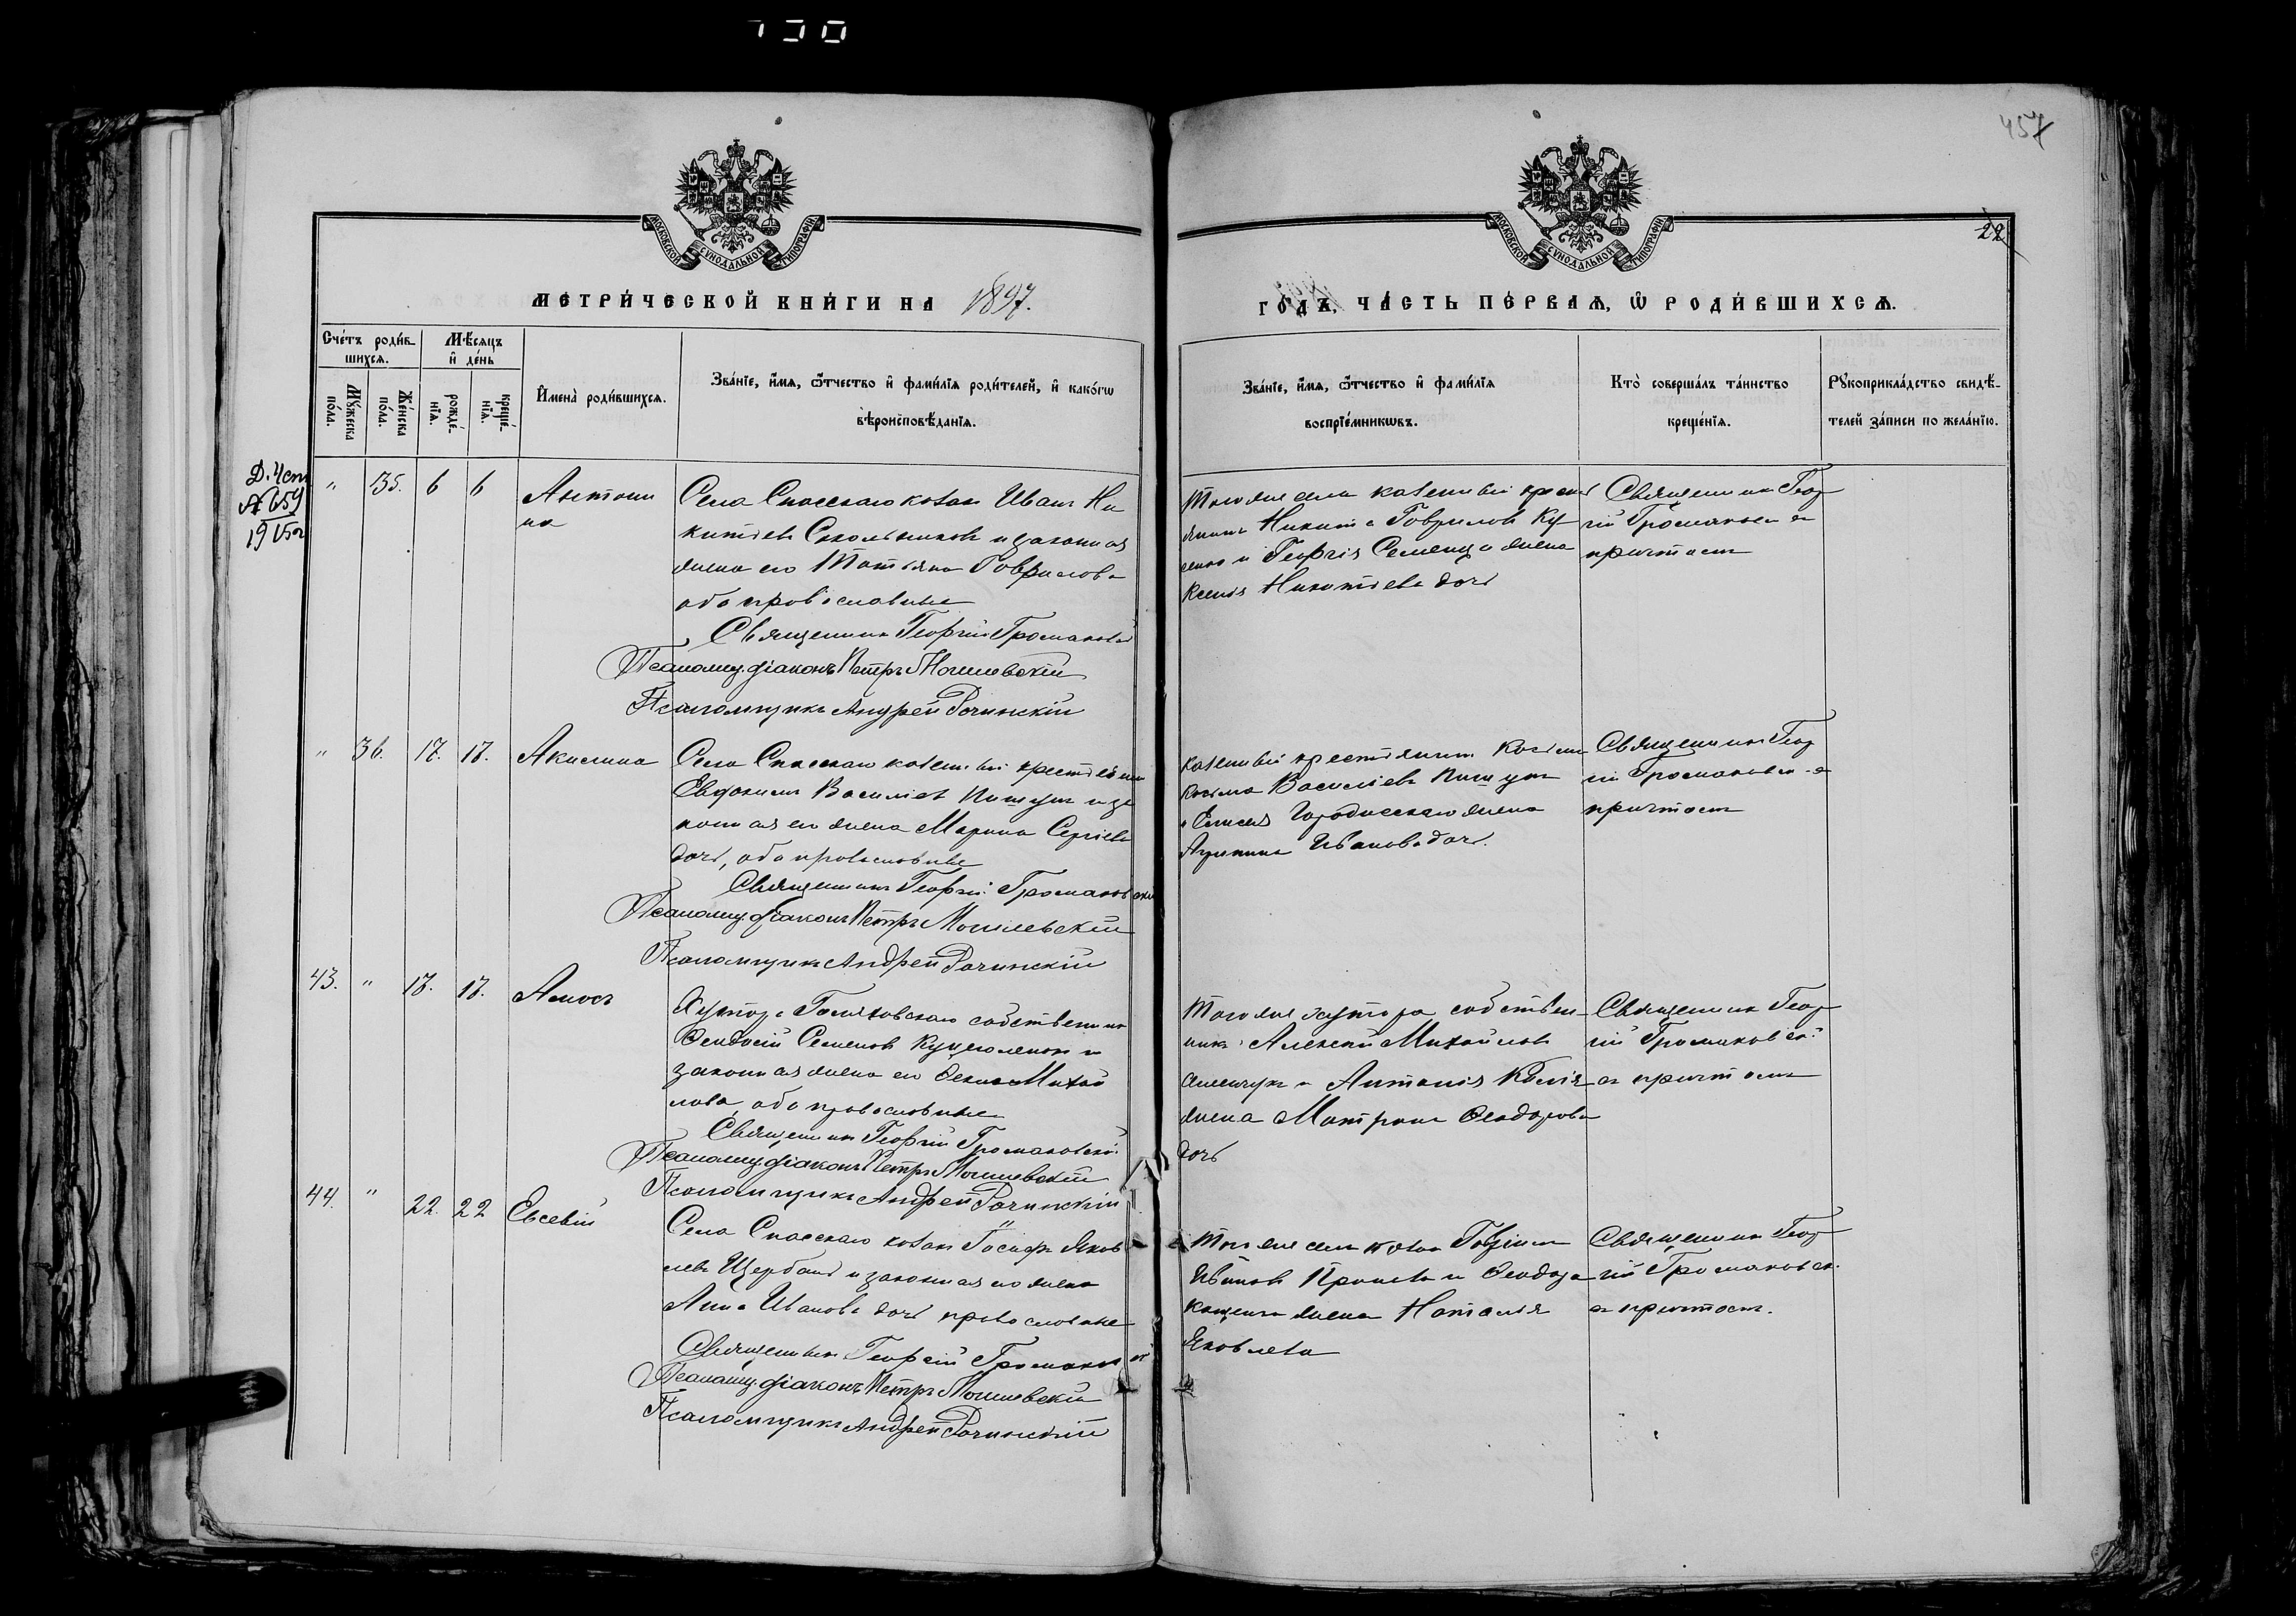 457
22
МОСКОВСКОЙ СѴНОДАЛЬНОЙ ТИПОГРАФІИ
МОСКОВСКОЙ СѴНОДАЛЬНОЙ ТИПОГРАФІИ
МЕТРИ́ЧЕСКОЙ КНИ́ГИ НА 1897.
ГО́ДЪ, ЧА́СТЬ ПЕ́РВАѦ, Ѡ РОДИ́ВШИХСѦ.
Сче́тъ роди́в-
шихсѧ.
Мꙋ́жеска по́ла.
Же́нска по́ла.
Мѣ́сяцъ
и҆ де́нь
рожде́-
нїѧ.
креще́-
нїѧ.
И҆мена̀ роди́вшихсѧ.
Зва́нїе, и҆́мѧ, ѻ҆́тчество и҆ фами́лїѧ роди́телей, и҆ како́гѡ
вѣроисповѣ́данїѧ.
Зва́нїе, и҆́мѧ, ѻ҆́тчество и҆ фами́лїѧ
воспрїе́мникѡвъ.
Кто̀ соверша́лъ та́инство
креще́нїѧ.
Рꙋкоприкла́дство свидѣ́-
телей за́писи по жела́нїю.
" 35. 6 6 Антони
на
Села Спасскаго козакъ Иванъ Ни
китіевъ Сокольниковъ и законная
жена его Татіана Гаврилова
оба православные
Священникъ Георгій Громаковскій
Псаломщ. діаконъ Петръ Могилевскій
Псаломщикъ Андрей Рачинскій
Того же села казенный крест
янинъ Никита Гавриловъ
и Георгія жена
Ксенія Никитіева дочь
Священникъ Геор
гій Громаковскій съ
причтомъ
" 36. 17. 17. Акилина
Села Спасскаго казенный крестіянинъ
Евфимій Василіевъ и за
конная его жена Марина Сергіева
дочь, оба православные
Священникъ Георгій Громаковскій
Псаломщ. діаконъ Петръ Могилевскій
Псаломщикъ Андрей Рачинскій
казенный крестіянинъ
Косьма Василіевъ
и Елисея Городисскаго жена
Иванова дочь.
Священникъ Геор
гій Громаковскій съ
причтомъ
43. " 17. 17. Амосъ
Хутора собственникъ
Феодосій Семеновъ и
законная жена его Михаи
лова, оба православные
Священникъ Георгій Громаковскій
Псаломщ. діаконъ Петръ Могилевскій
Псаломщикъ Андрей Рачинскій
Того же хутора собствен
никъ Алексій Михайловъ
и Антонія
жена Матрона Феодорова
дочь
Священникъ Геор
гій Громаковскій
съ причтомъ
44. " 22. 22 Евсевій
Села Спасскаго козакъ Іосифъ Яков
левъ Щербань и законная его жена
Анна Иванова дочь православные
Священникъ Георгій Громаковскій
Псаломщ. діаконъ Петръ Могилевскій
Псаломщикъ Андрей Рачинскій
Того же села козакъ Гавріилъ
Ивановъ и Феодора
жена Наталія
Яковлева
Священникъ Геор
гій Громаковск.
съ причтомъ.